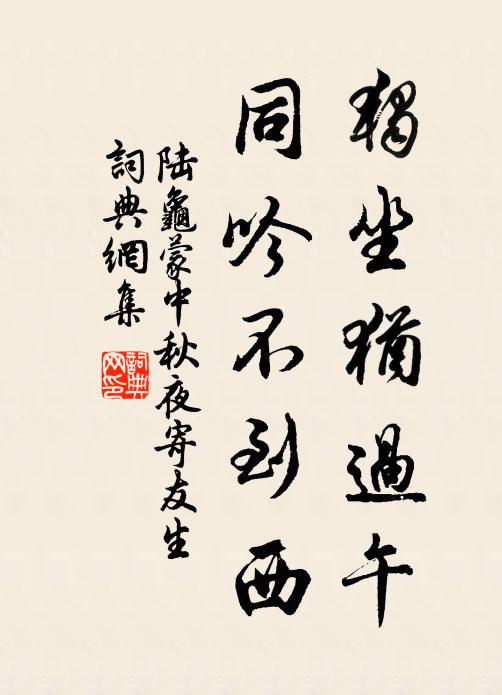 獨坐猶過午
同吟不到西
陸龜蒙中秋夜寄友生
詞典網集
詞典
网印